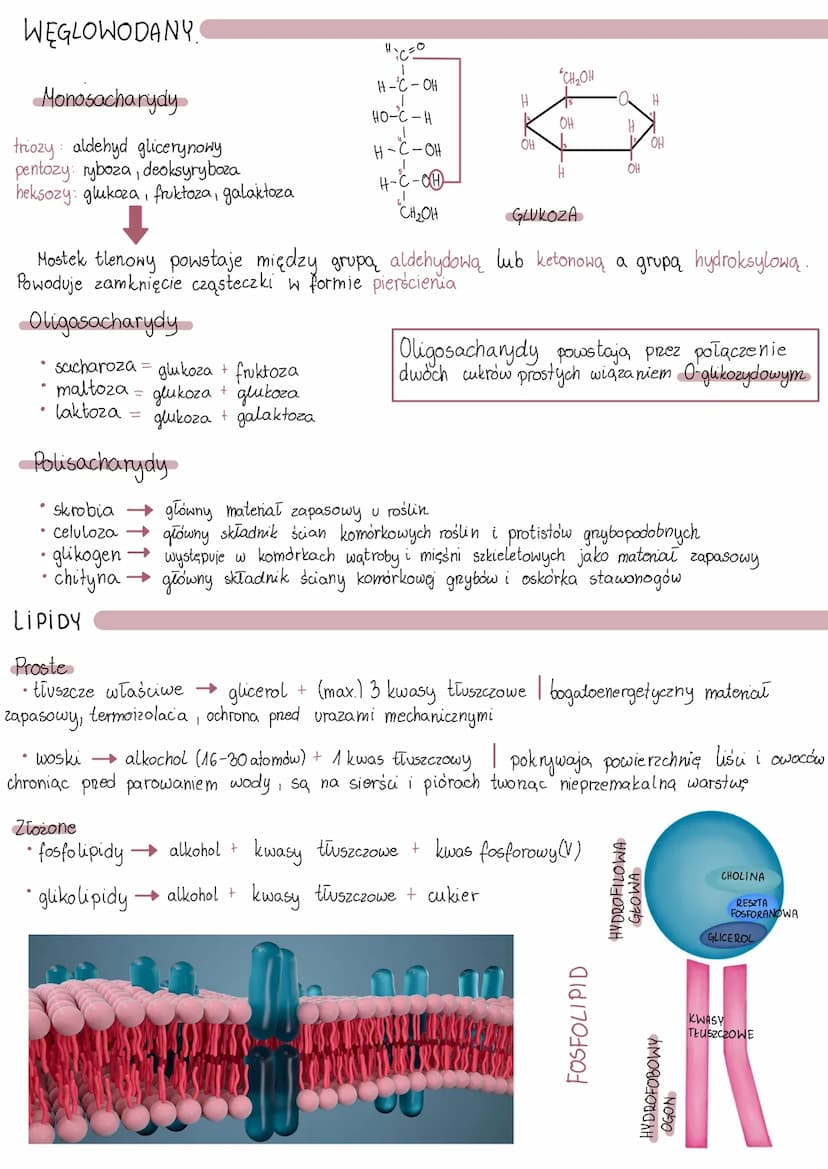 WĘGLOWODANY.
Monosacharydy
triozy: aldehyd glicerynowy
pentozy: ryboza, deoksyryboza
heksozy: glukoza, fruktoza, galaktoza
H C=O
H-C-OH
HO-C-H
H-C-OH
H-C-OH
6 CH2OH
6 CH2OH
H 5 O H
OH H
OH OH
H OH
GLUKOZA
Mostek tlenowy powstaje między grupą aldehydową lub ketonową a grupą hydroksylową.
Powoduje zamknięcie cząsteczki w formie pierścienia
Oligosacharydy
• sacharoza = glukoza + fruktoza
• maltoza = glukoza + glukoza
• laktoza = glukoza + galaktoza
Oligosacharydy powstają przez połączenie
dwóch cukrów prostych wiązaniem O-glikozydowym
Polisacharydy
• skrobia → główny materiał zapasowy u roślin
• celuloza → główny składnik ścian komórkowych roślin i protistów grzybopodobnych
• glikogen → występuje w komórkach wątroby i mięśni szkieletowych jako materiał zapasowy
• chityna → główny składnik ściany komórkowej grzybów i oskórka stawonogów
LIPIDY
Proste
• tłuszcze właściwe → glicerol + (max.) 3 kwasy tłuszczowe | bogatoenergetyczny materiał
zapasowy, termoizolacja, ochrona przed urazami mechanicznymi
• woski → alkochol (16-30 atomów) + 1 kwas tłuszczowy | pokrywają powierzchnię liści i owoców
chroniąc przed parowaniem wody, są na sierści i piórach tworząc nieprzemakalną warstwę
Złożone
• fosfolipidy → alkohol + kwasy tłuszczowe + kwas fosforowy(V)
• glikolipidy → alkohol + kwasy tłuszczowe + cukier
HYDROFILOWA
GŁOWA
CHOLINA
RESZTA
FOSFORANOWA
GLICEROL
FOSFOLIPID
KWASY
TŁUSZCZOWE
HYDROFOBOWY
OGON